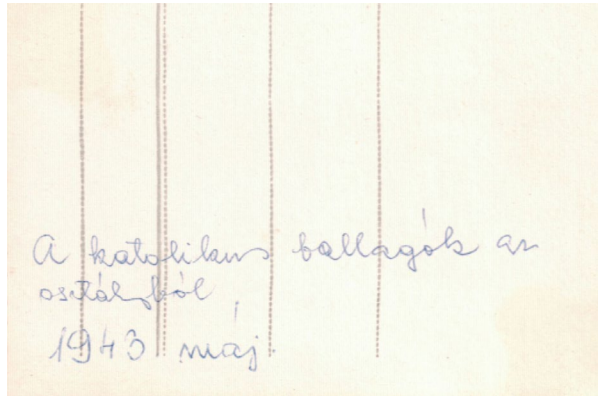 A katolikus ballagók az
osztályból
1943 máj.